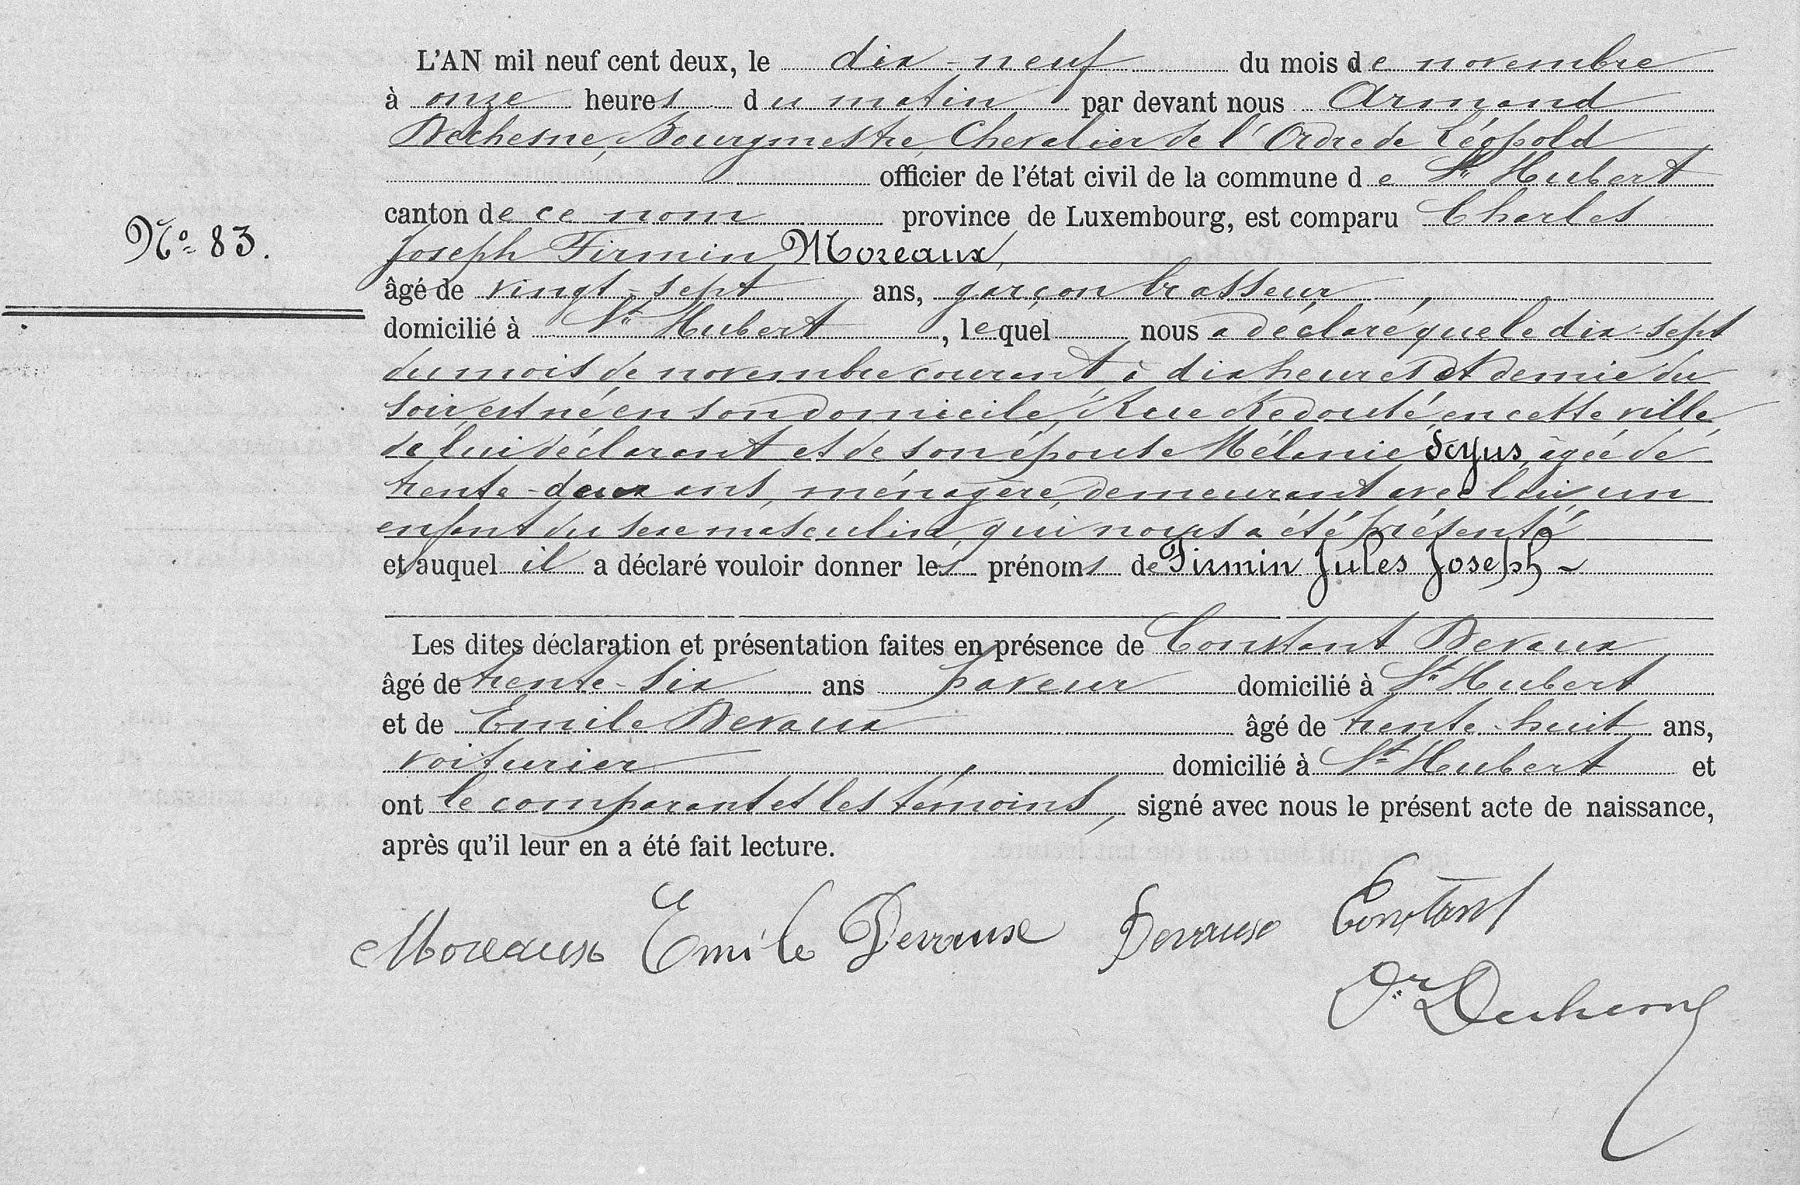 L'AN mil neuf cent deux, le dix-neuf du mois de novembre
à onze heures du matin par devant nous Armand
Dechesne, Bourgmestre, Chevalier de l'Ordre de Léopold
officier de l'état civil de la commune de St Hubert
canton de ce nom province de Luxembourg, est comparu Charles
Nº 83.
Joseph Firmin Moreaux,
âgé de vingt-sept ans, garçon brasseur
domicilié à St Hubert, lequel nous a déclaré que le dix-sept
du mois de novembre courant, à dix heures et demie du
soir est né en son domicile, Rue Redouté, en cette ville,
de lui déclarant et de son épouse Mélanie agée de
trente-deux ans, ménagère, demeurant avec lui, un
enfant du sexe masculin, qui nous a été présenté
et auquel il a déclaré vouloir donner les prénoms de Firmin Jules Joseph -
Les dites déclaration et présentation faites en présence de Constant Devaux
âgé de trente-six ans paveur domicilié à St Hubert
et de Emile Devaux âgé de trente-huit ans,
voiturier domicilié à St Hubert et
ont le comparant et les témoins, signé avec nous le présent acte de naissance,
après qu'il leur en a été fait lecture.
Moreaux Emile Devaux Devaux Constant
Dr Dechesne